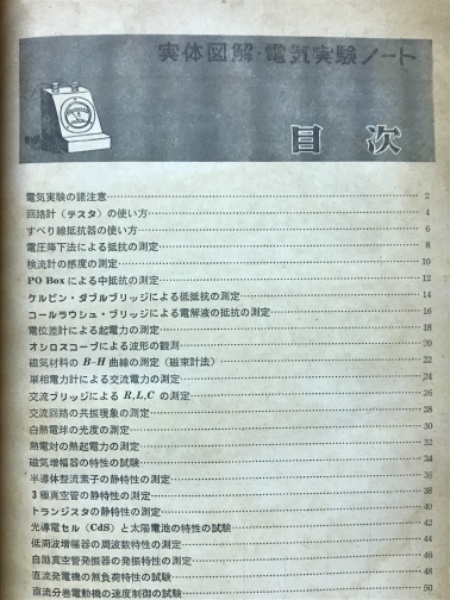 実体図解・電気実験ノート
目次
電気実験の諸注意 2
回路計（テスタ）の使い方 4
すべり線抵抗器の使い方 6
電圧降下法による抵抗の測定 8
検流計の感度の測定 10
PO Boxによる中抵抗の測定 12
ケルビン・ダブルブリッジによる低抵抗の測定 14
コールラウシュ・ブリッジによる電解液の抵抗の測定 16
電位差計による起電力の測定 18
オシロスコープによる波形の観測 20
磁気材料のB-H曲線の測定（磁束計法） 22
単相電力計による交流電力の測定 24
交流ブリッジによるR,L,Cの測定 26
交流回路の共振現象の測定 28
白熱電球の光度の測定 30
熱電対の熱起電力の測定 32
磁気増幅器の特性の試験 34
半導体整流素子の静特性の測定 36
3極真空管の静特性の測定 38
トランジスタの静特性の測定 40
光導電セル（CdS）と太陽電池の特性の試験 42
低周波増幅器の周波数特性の測定 44
自励真空管発振器の発振特性の測定 46
直流発電機の無負荷特性の試験 48
直流分巻電動機の速度制御の試験 50